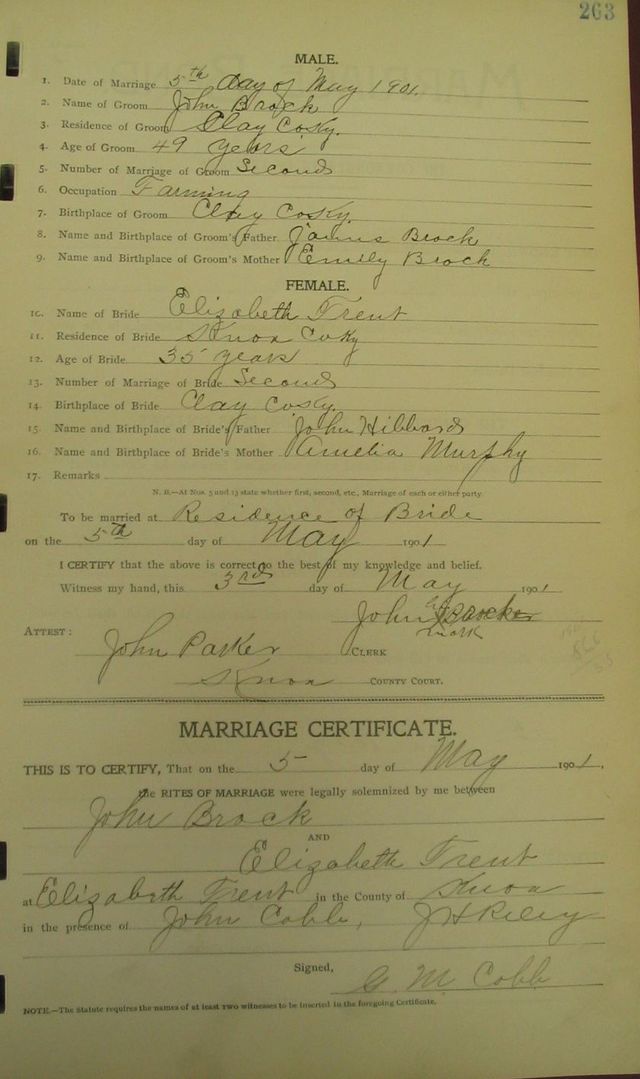 263
MALE.
1. Date of Marriage 5th day of May 1901.
2. Name of Groom John Brock
3. Residence of Groom Clay Co Ky.
4. Age of Groom 49 years
5. Number of Marriage of Groom Second
6. Occupation Farming
7. Birthplace of Groom Clay Co Ky.
8. Name and Birthplace of Groom's Father James Brock
9. Name and Birthplace of Groom's Mother Emily Brock
FEMALE.
10. Name of Bride Elizabeth Trent
11. Residence of Bride Knox Co Ky
12. Age of Bride 35 years
13. Number of Marriage of Bride Second
14. Birthplace of Bride Clay Co Ky.
15. Name and Birthplace of Bride's Father John Hibbard
16. Name and Birthplace of Bride's Mother Amelia Murphy
17. Remarks
N. B.—At Nos. 5 and 13 state whether first, second, etc., Marriage of each or either party.
To be married at Residence of Bride
on the 5th day of May 1901
I CERTIFY that the above is correct to the best of my knowledge and belief.
Witness my hand, this 3rd day of May 1901
John Brock
mark
ATTEST:
John Parker CLERK
Knox COUNTY COURT.
MARRIAGE CERTIFICATE.
THIS IS TO CERTIFY, That on the 5 day of May 1901,
the RITES OF MARRIAGE were legally solemnized by me between
John Brock
AND
Elizabeth Trent
at Elizabeth Trent in the County of Knox
in the presence of John Cobb, J H Riley
Signed,
G. M. Cobb
NOTE.—The Statute requires the names of at least two witnesses to be inserted in the foregoing Certificate.